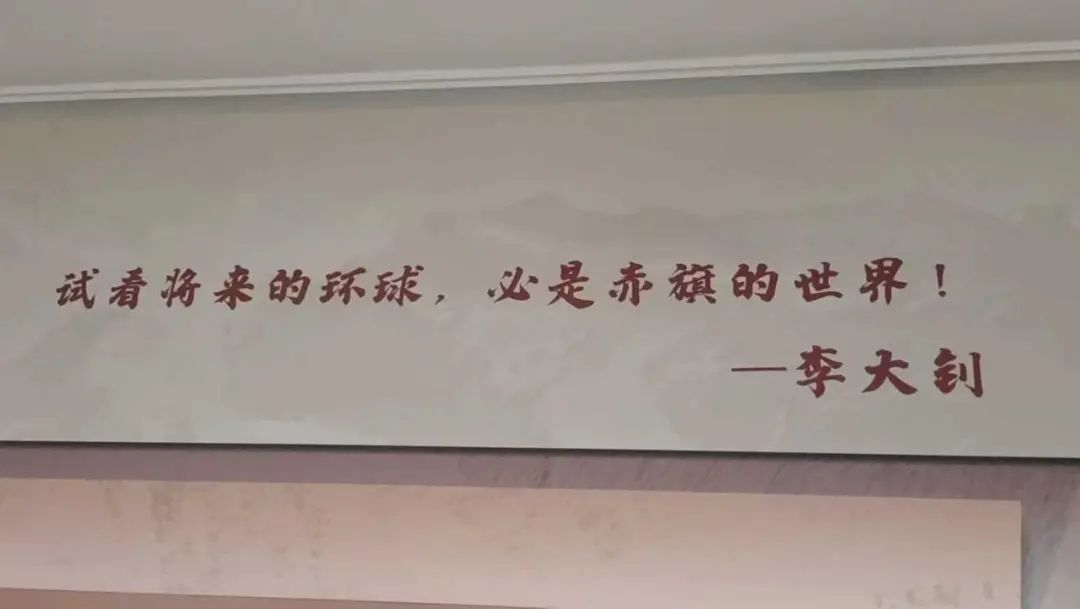 试看将来的环球，必是赤旗的世界！
—李大钊